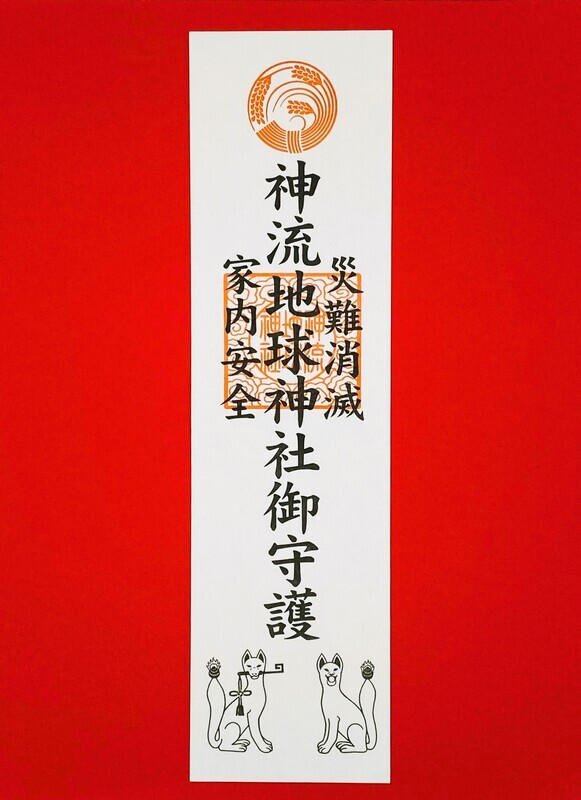 災難消滅
神流地球神社御守護
家内安全